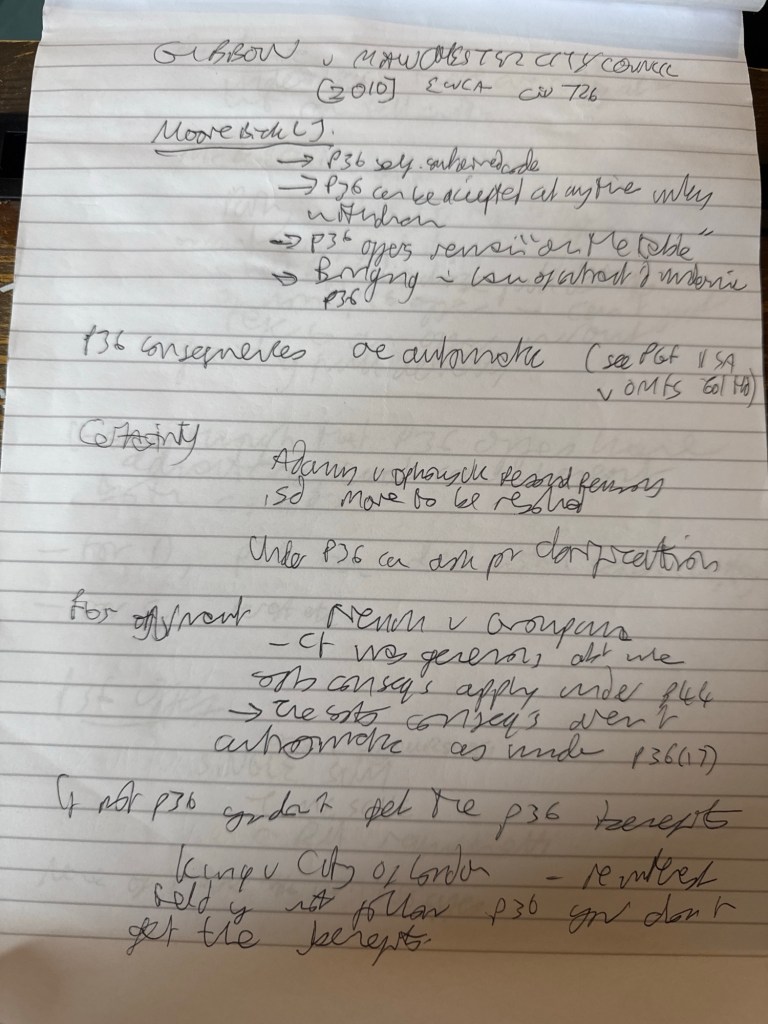 GIBBON v MANCHESTER CITY COUNCIL
[2010] EWCA Civ 726
Moore Bick LJ.
→ P36 self-contained code
→ P36 can be accepted at any time unless
withdrawn
→ P36 offers remain "on the table"
→ law of contract
P36
P36 consequences are automatic (see PGF II SA
v OMFS Co 1 Ltd)
Certainty
Adams v Options UK Personal Pensions
more to be resolved
Under P36 can ask for clarification
For offer v Groupama
- Ct was generous, but the
costs conseq's apply under P44
→ The costs conseq's aren't
automatic as under P36(17)
If not P36 you don't get the P36 benefits
King v City of London - re interest
held if not follow P36 you don't
get the benefits.